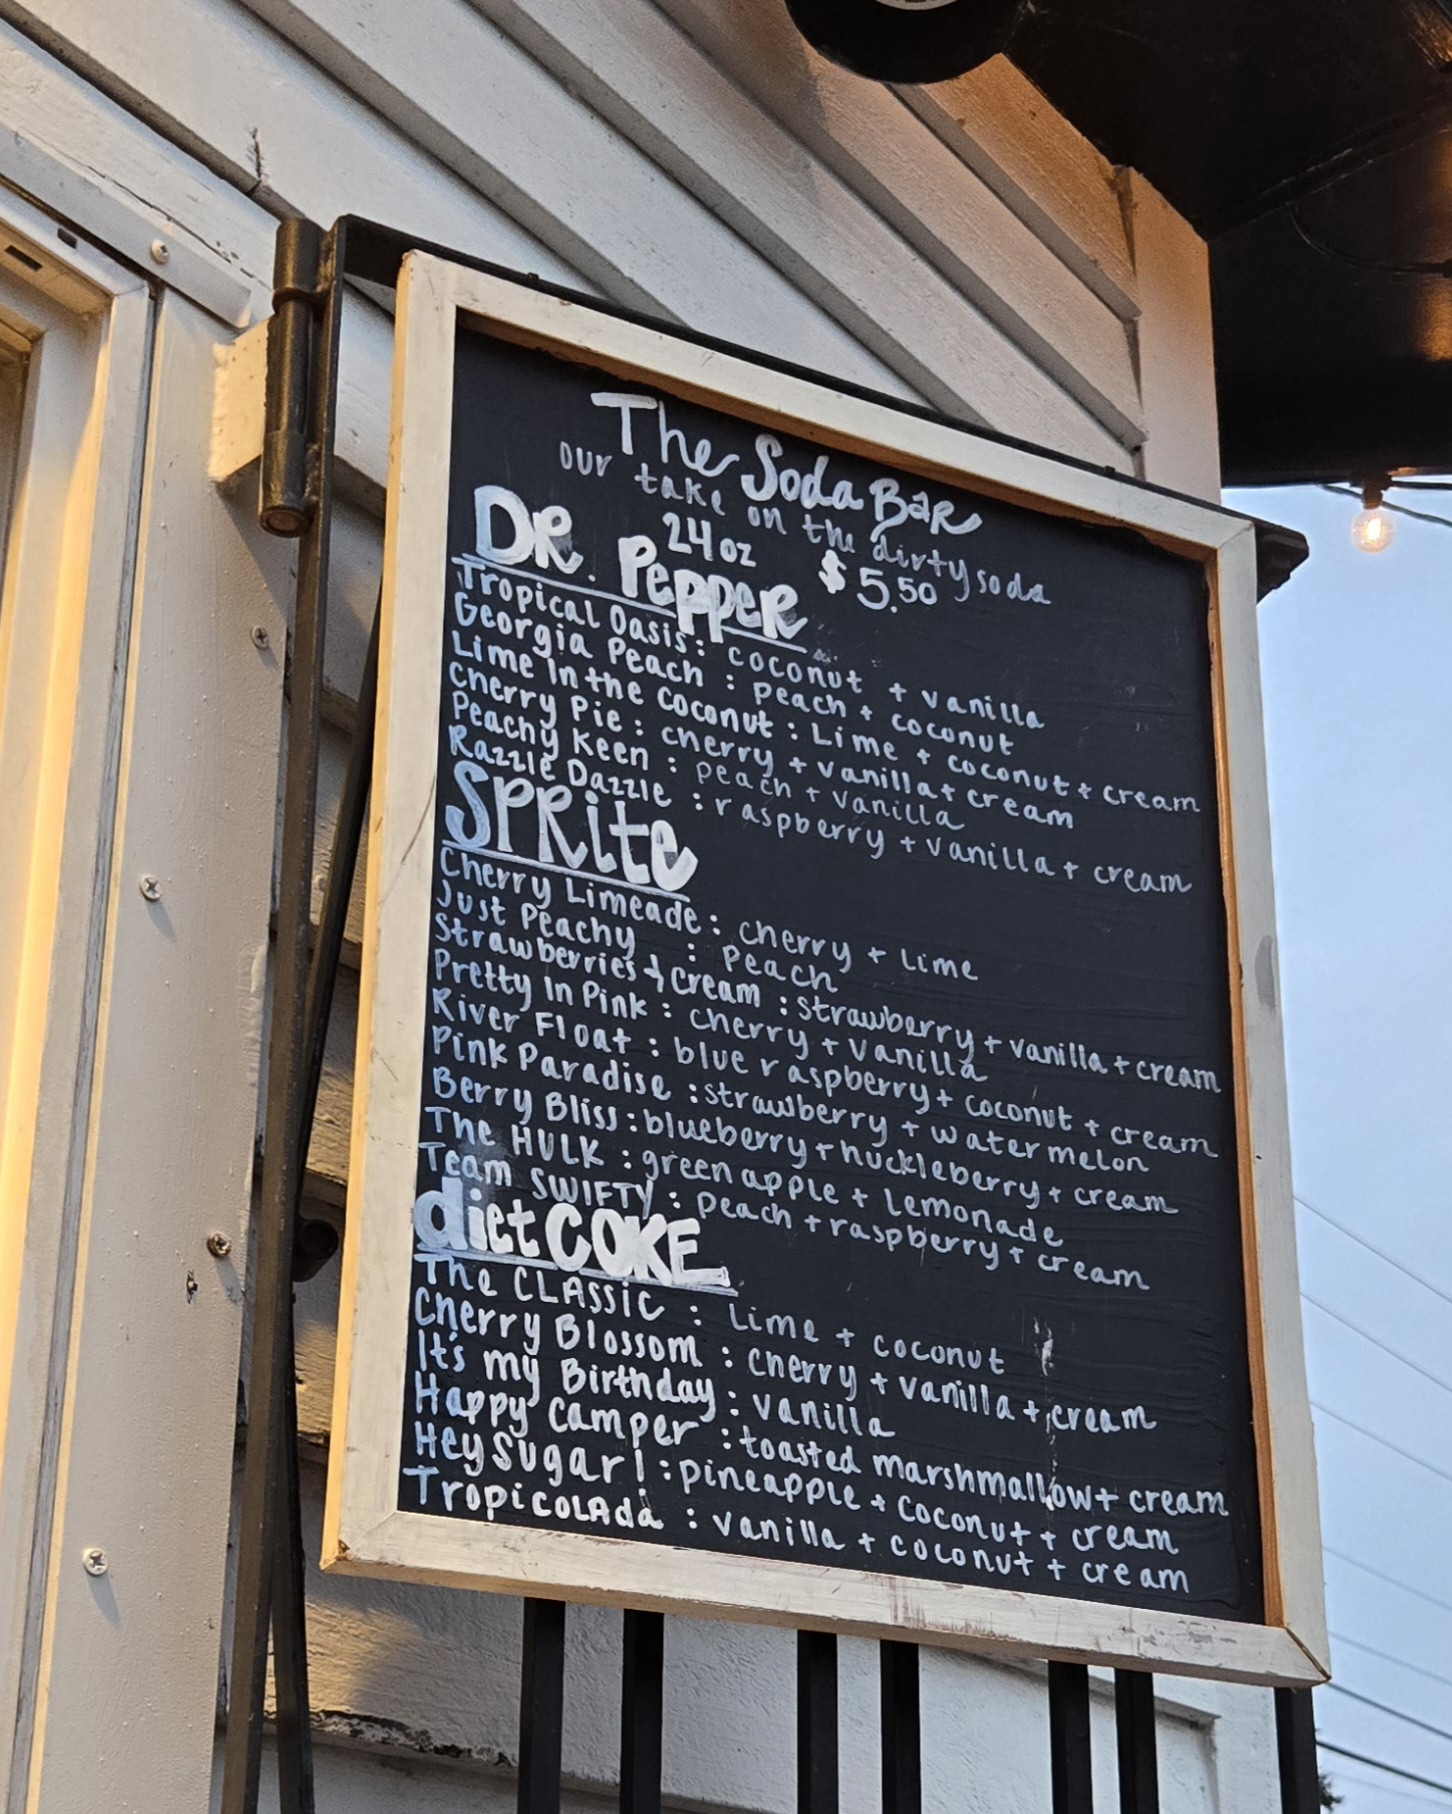 The Soda Bar
our take on the dirty soda
24oz $5.50
DR. Pepper
Tropical Oasis: coconut + vanilla
Georgia Peach : peach + coconut
Lime In the Coconut : Lime + coconut + cream
Cherry Pie : cherry + vanilla + cream
Peachy Keen : peach + vanilla
Razzle Dazzle : raspberry + vanilla + cream
SPRite
Cherry Limeade : cherry + Lime
Just Peachy : peach
Strawberries & Cream : strawberry + vanilla + cream
Pretty In Pink : cherry + vanilla
River Float : blue raspberry + coconut + cream
Pink Paradise : strawberry + watermelon
Berry Bliss : blueberry + huckleberry + cream
The HULK : green apple + Lemonade
Team SWIFTY : peach + raspberry + cream
diet COKE
The CLASSIC : Lime + coconut
Cherry Blossom : cherry + vanilla + cream
It's my Birthday : vanilla
Happy Camper : toasted marshmallow + cream
Hey Sugar! : pineapple + coconut + cream
TropicoLAda : vanilla + coconut + cream